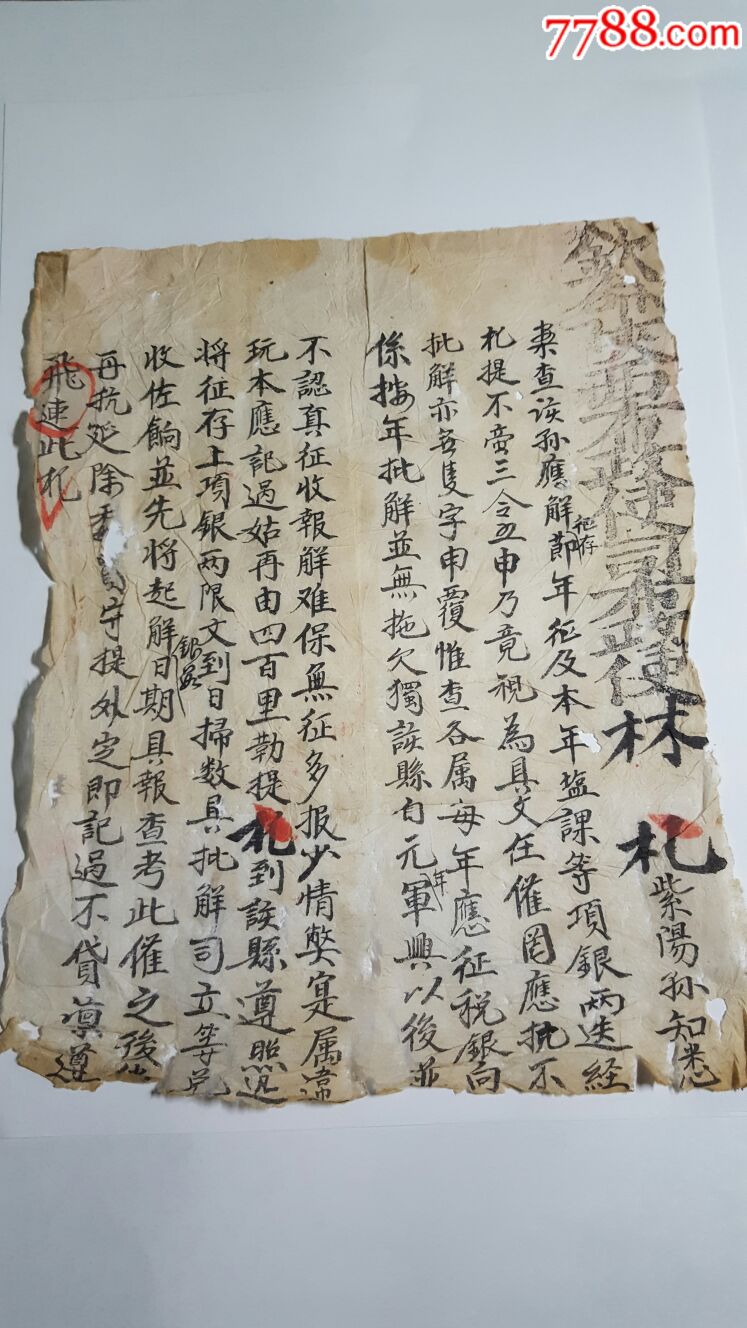 7788.com
布政使司布政使林
札紫陽孙知悉
案查该孙應解節年征及本年盐課等項銀兩迭経
征存
札提不啻三令五申乃竟視為具文任催罔應批不
批解亦無隻字申覆惟查各属每年應征税銀向
係按年批解並無拖欠獨該縣自元年軍興以後並
不認真征收報解难保無征多报少情弊寔属
玩本應記過姑再由四百里勒提札到該縣遵照迅
将征存上項銀两限文到日掃数具批解司立等兑
銀兩
收佐餉並先将起解日期具報查考此催之後
再抗延除委員守提外定即記過不貸凛遵
飛速此札